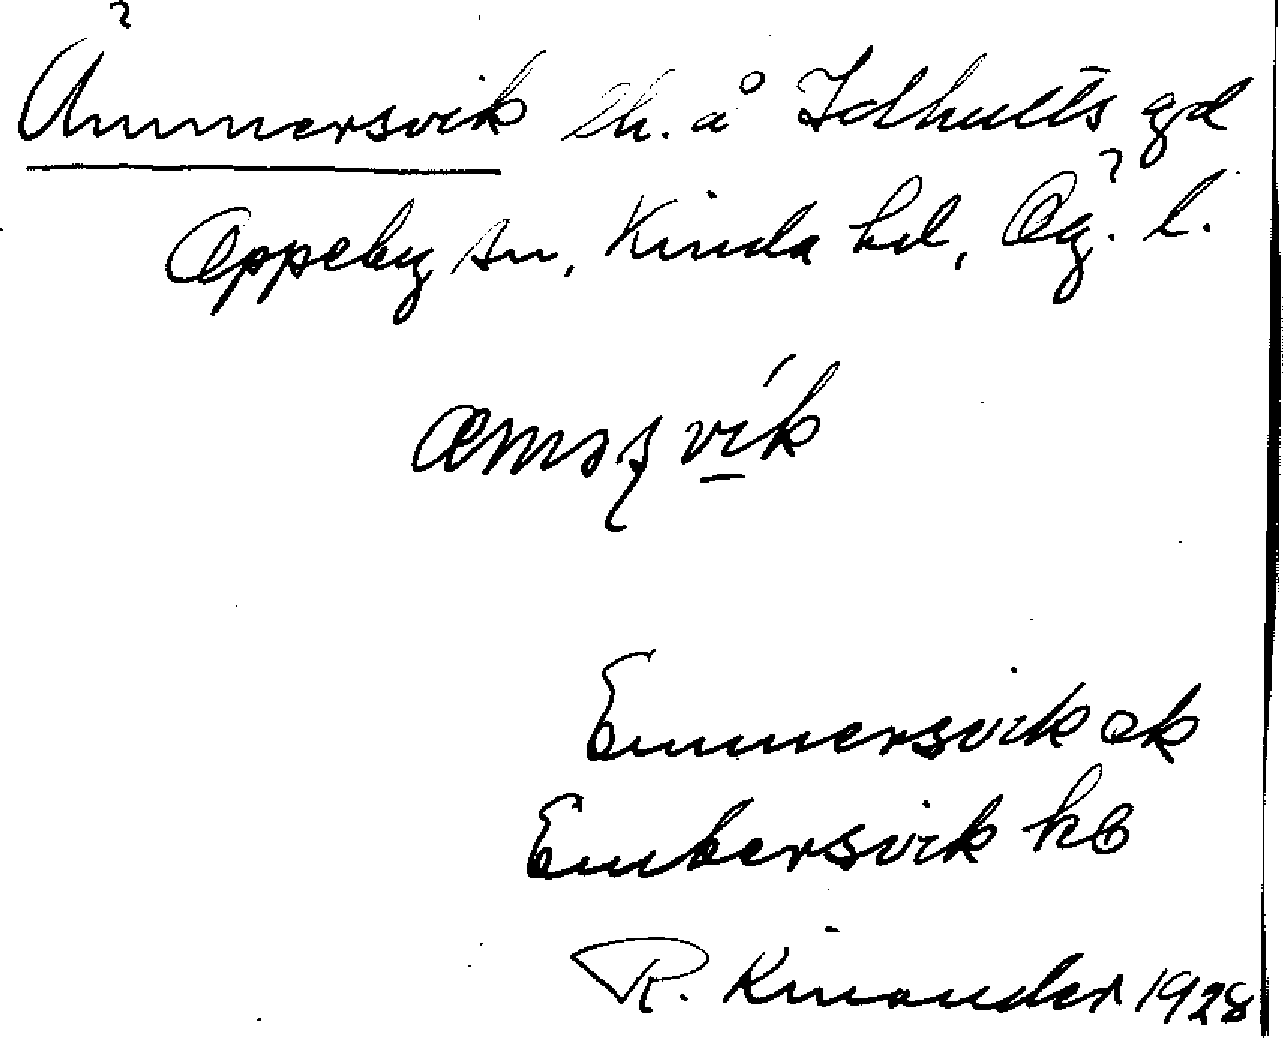 Ämmersvik lh. å Idhults gd
Oppeby sn, Kinda hd, Ög. l.
Emmersvik ek
Embersvik kb
R. Kinander 1928